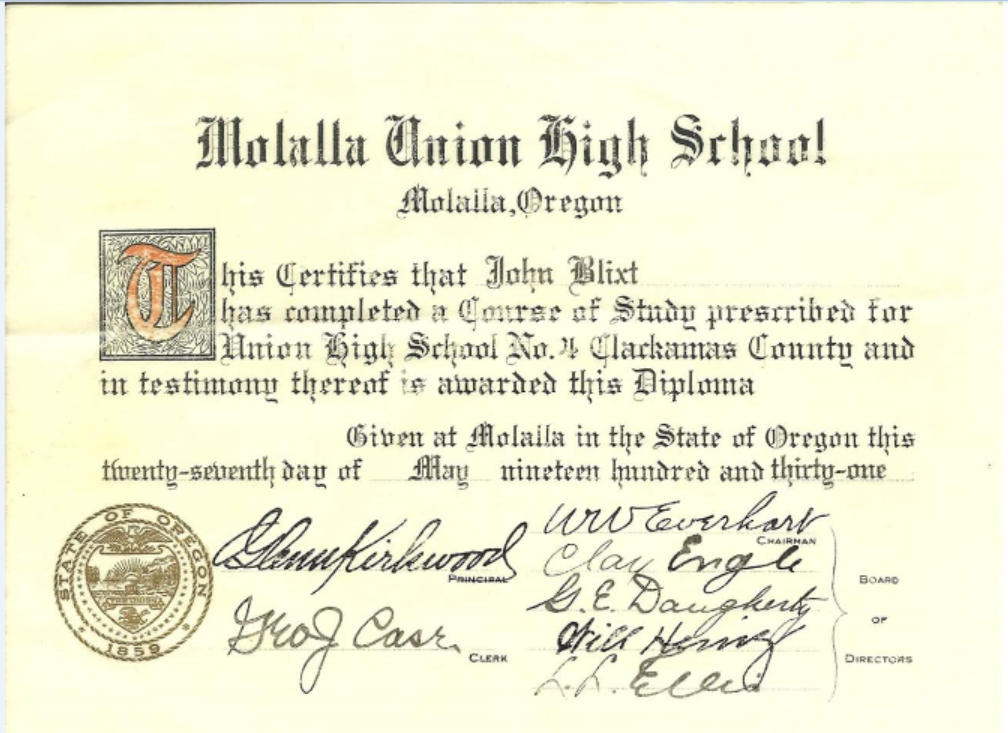 Molalla Union High School
Molalla, Oregon
This Certifies that John Blixt
has completed a Course of Study prescribed for
Union High School No. 4 Clackamas County and
in testimony thereof is awarded this Diploma
Given at Molalla in the State of Oregon this
twenty-seventh day of May nineteen hundred and thirty-one
STATE OF OREGON
1859
Glenn Kirkwood
PRINCIPAL
Geo J Case
CLERK
WW Everhart
CHAIRMAN
Clay Engle
G. E. Daugherty
Will
L. L. Ellis
BOARD
OF
DIRECTORS